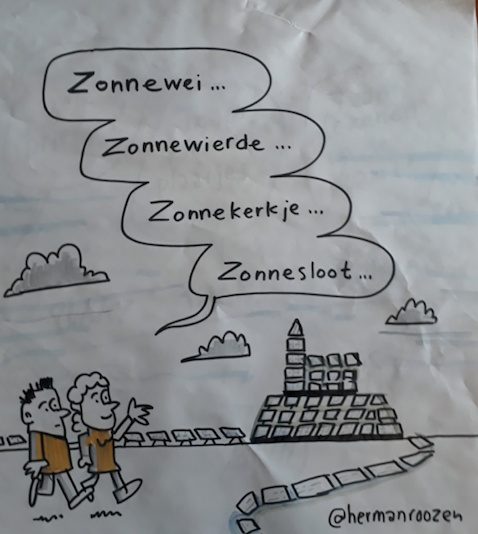 Zonnewei...
Zonnewierde...
Zonnekerkje...
Zonnesloot...
@hermanroozen